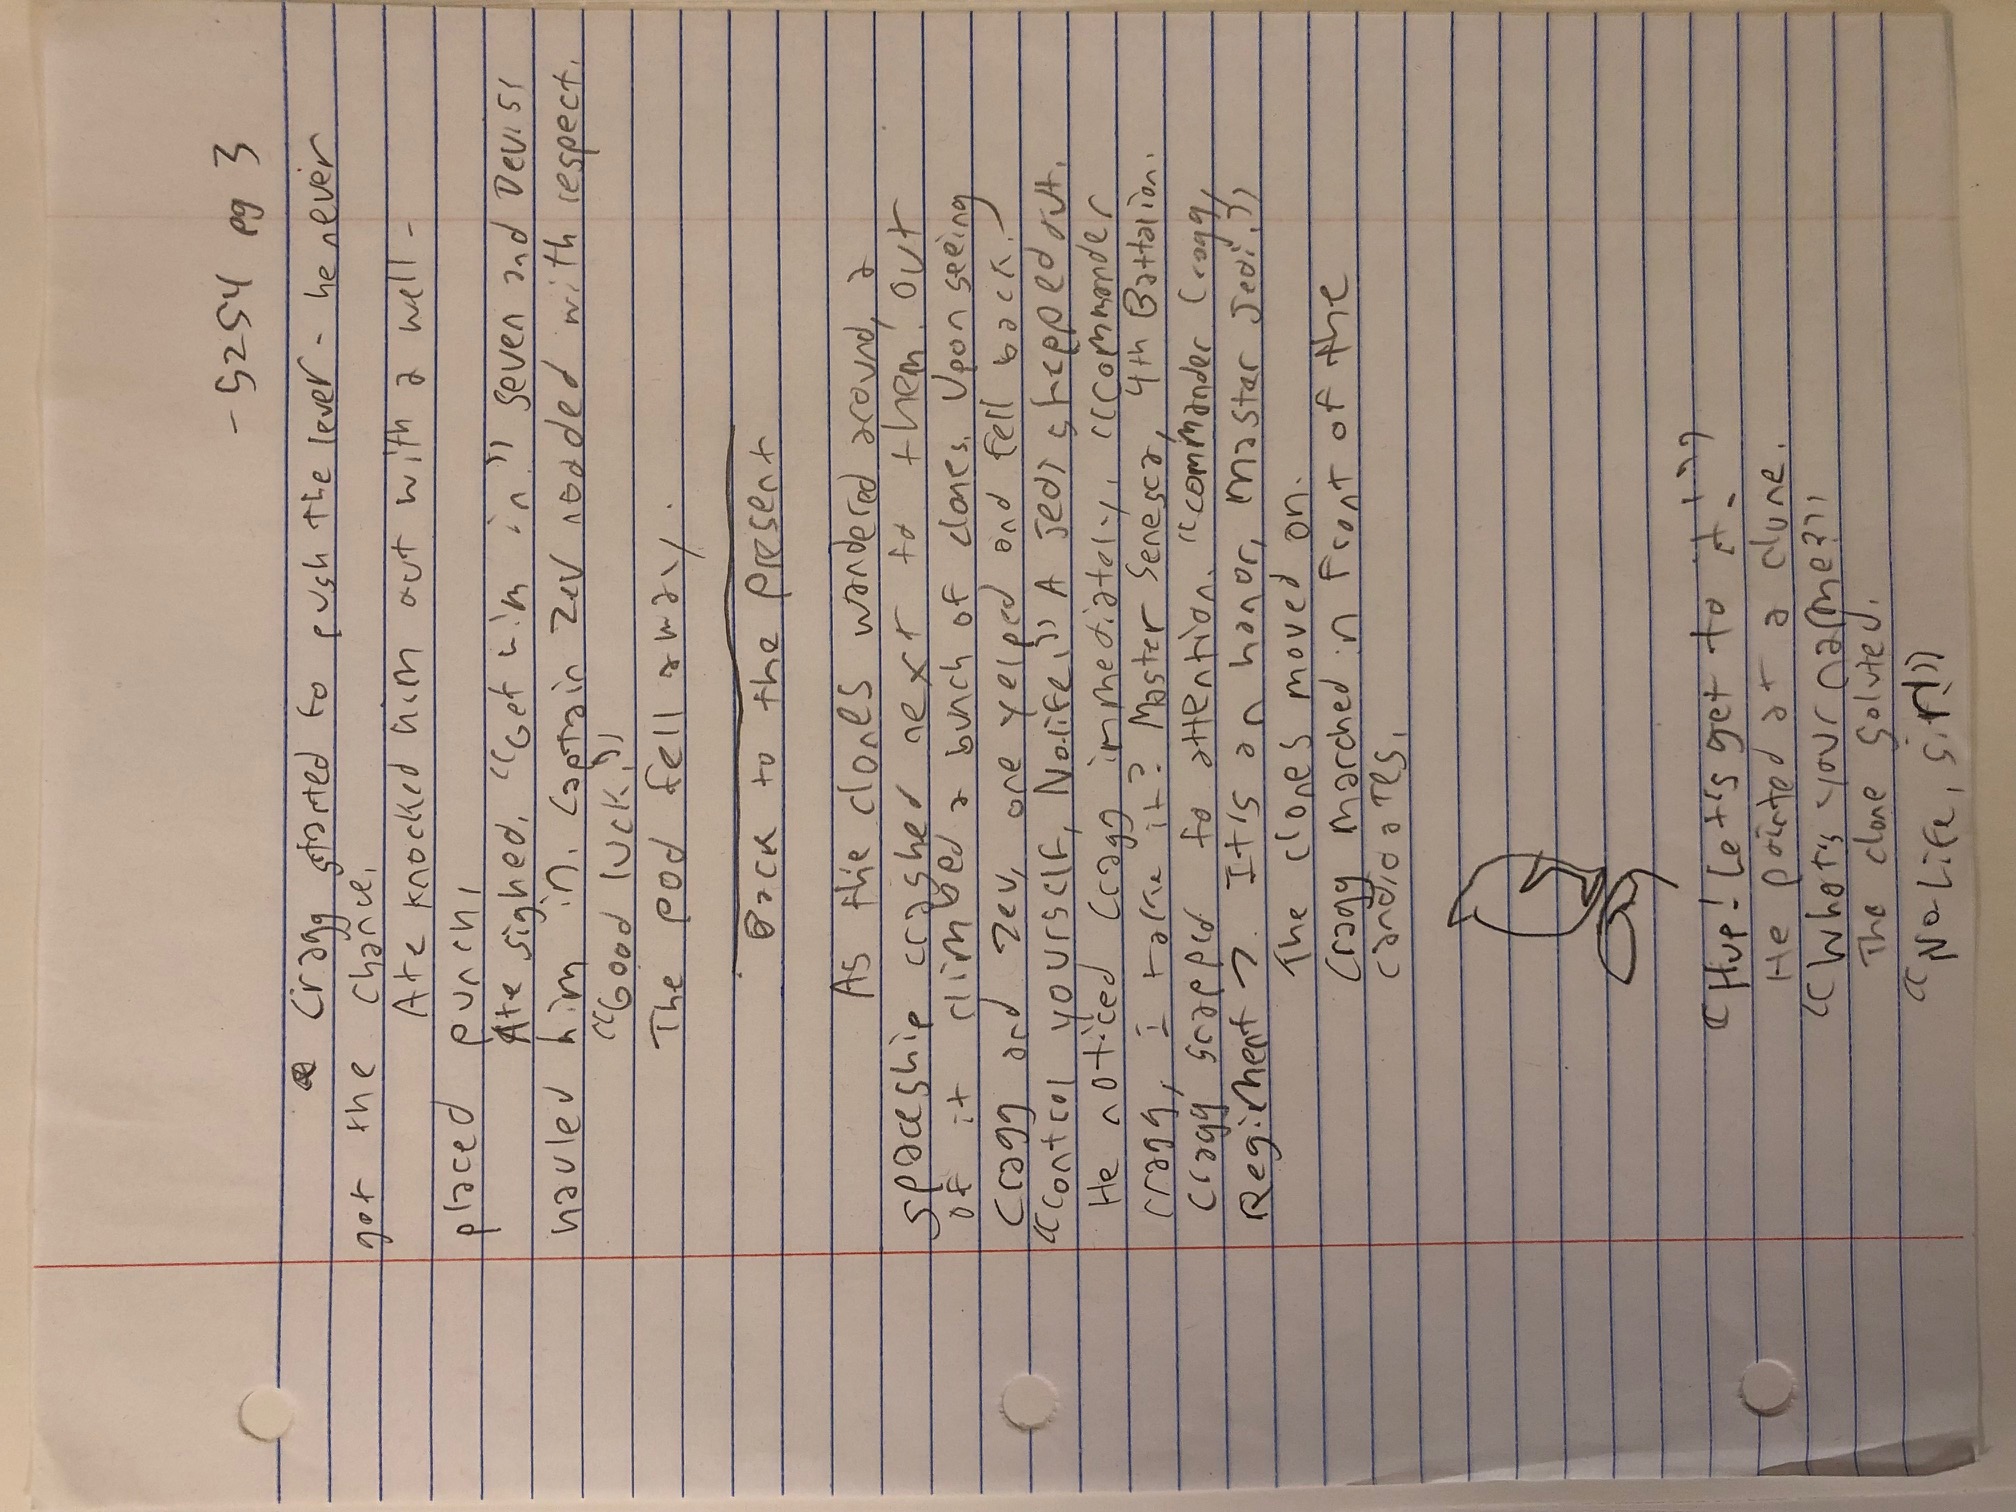 - 5254 pg 3
Cragg started to push the lever - he never
got the chance.
Ate knocked him out with a well-
placed punch.
Ate sighed. "Get him in." Seven and Devis
hauled him in. Captain Zev nodded with respect.
"Good luck."
The pod fell away.
Back to the Present
As the clones wandered around, a
spaceship crashed next to them. Out
of it climbed a bunch of clones. Upon seeing
Cragg and Zev, one yelped and fell back.
"Control yourself, No-life." A Jedi stepped out.
He noticed Cragg immediately. "Commander
Cragg, I take it? Master Senesca, 4th Battalion.
Cragg snapped to attention. "Commander Cragg,
Regiment 7. It's an honor, Master Jedi."
The clones moved on.
Cragg marched in front of the
candidates.
"Hup! Let's get to it!"
He pointed at a clone.
"What's your name?"
The clone saluted.
"No-Life, sir!"